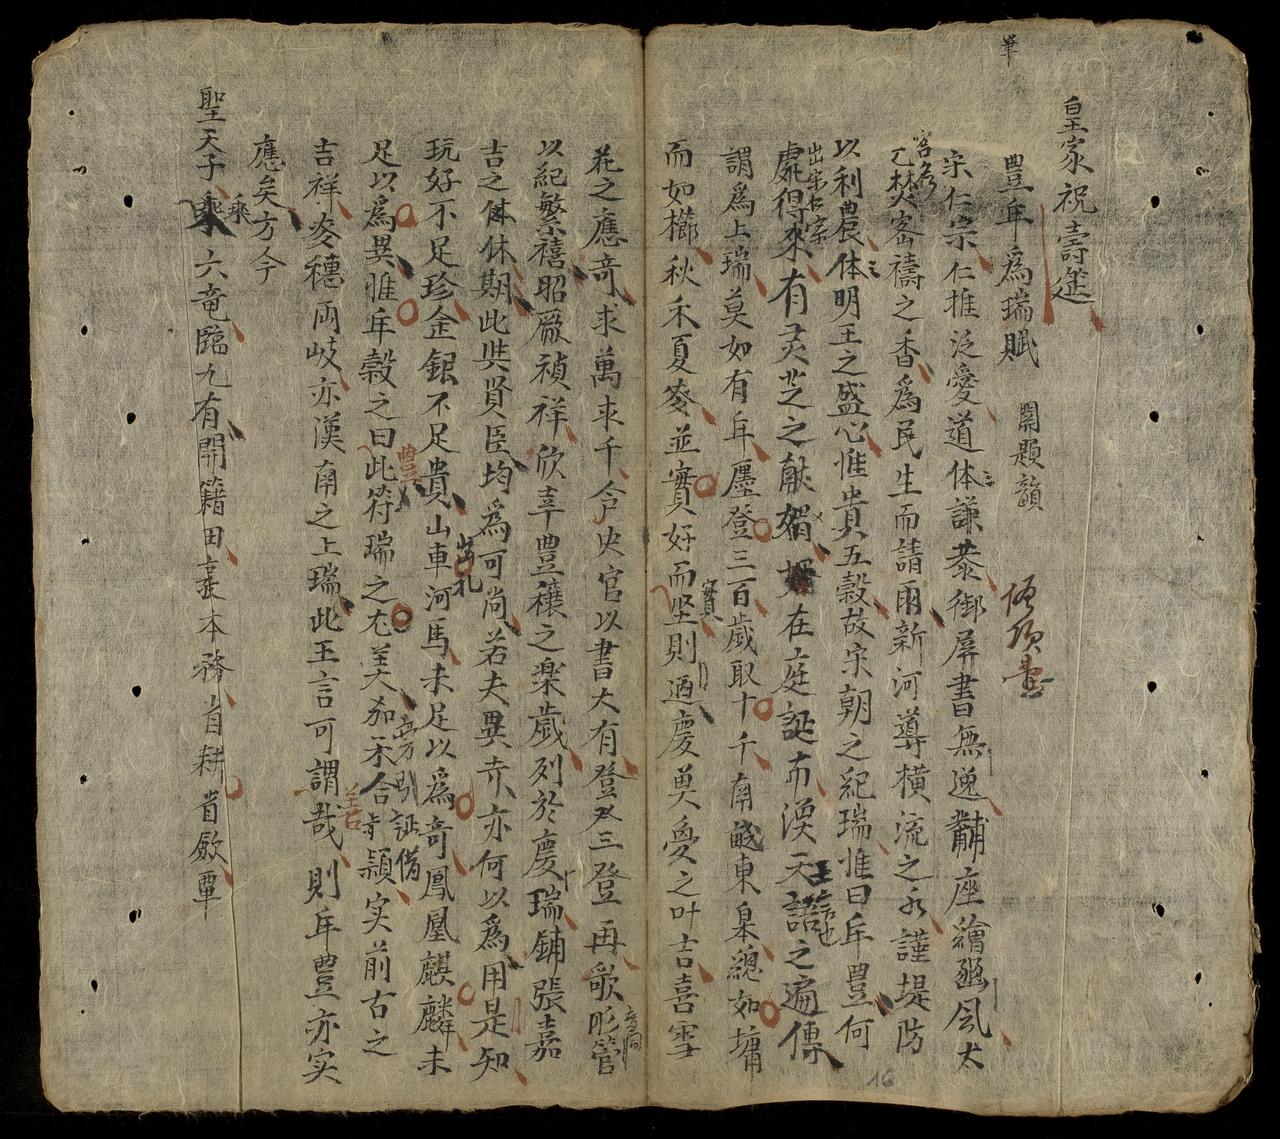 皇家祝壽筵
豊年為瑞賦 限題韻
宋仁宗仁推泛愛道体謙恭御屏書無逸黼座繪豳風太
乙焚密禱之香為民生而請雨新河導橫流之水謹堤防
以利農体明王之盛心惟貴五穀故宋朝之紀瑞惟曰年豊何
出宋仁宗
處得來有灵芝之献瑞在庭誕布渙天語之遍傳
王言也
謂為上瑞莫如有年廛登三百歲取十千南畝東皋總如墉
而如櫛秋禾夏麥並實好而坚則迺慶奠爰之叶吉喜雪
實
花之應奇求萬求千令史官以書大有登又三登再歌彤管
以紀繁禧昭厥禎祥欣幸豊穰之樂歲列於慶瑞鋪張嘉
吉之休期此典賢臣均為可尚若夫異卉亦何以為用是知
玩好不足珍金銀不足貴山車河馬未足以為奇鳳凰麒麟未
出礼
足以為異惟年穀之曰此符瑞之尤美如禾合穎实前古之
豊
旁引証借
吉祥麥穗両岐亦漢南之上瑞此王言可謂哉則年豊亦实
善
應矣方今
聖天子乘六竜臨九有開籍田衷本務省耕省歛覃
乘
16